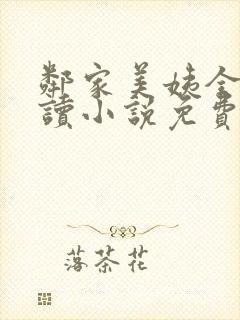 鄰家美姨全
讀小說免費
落茶花